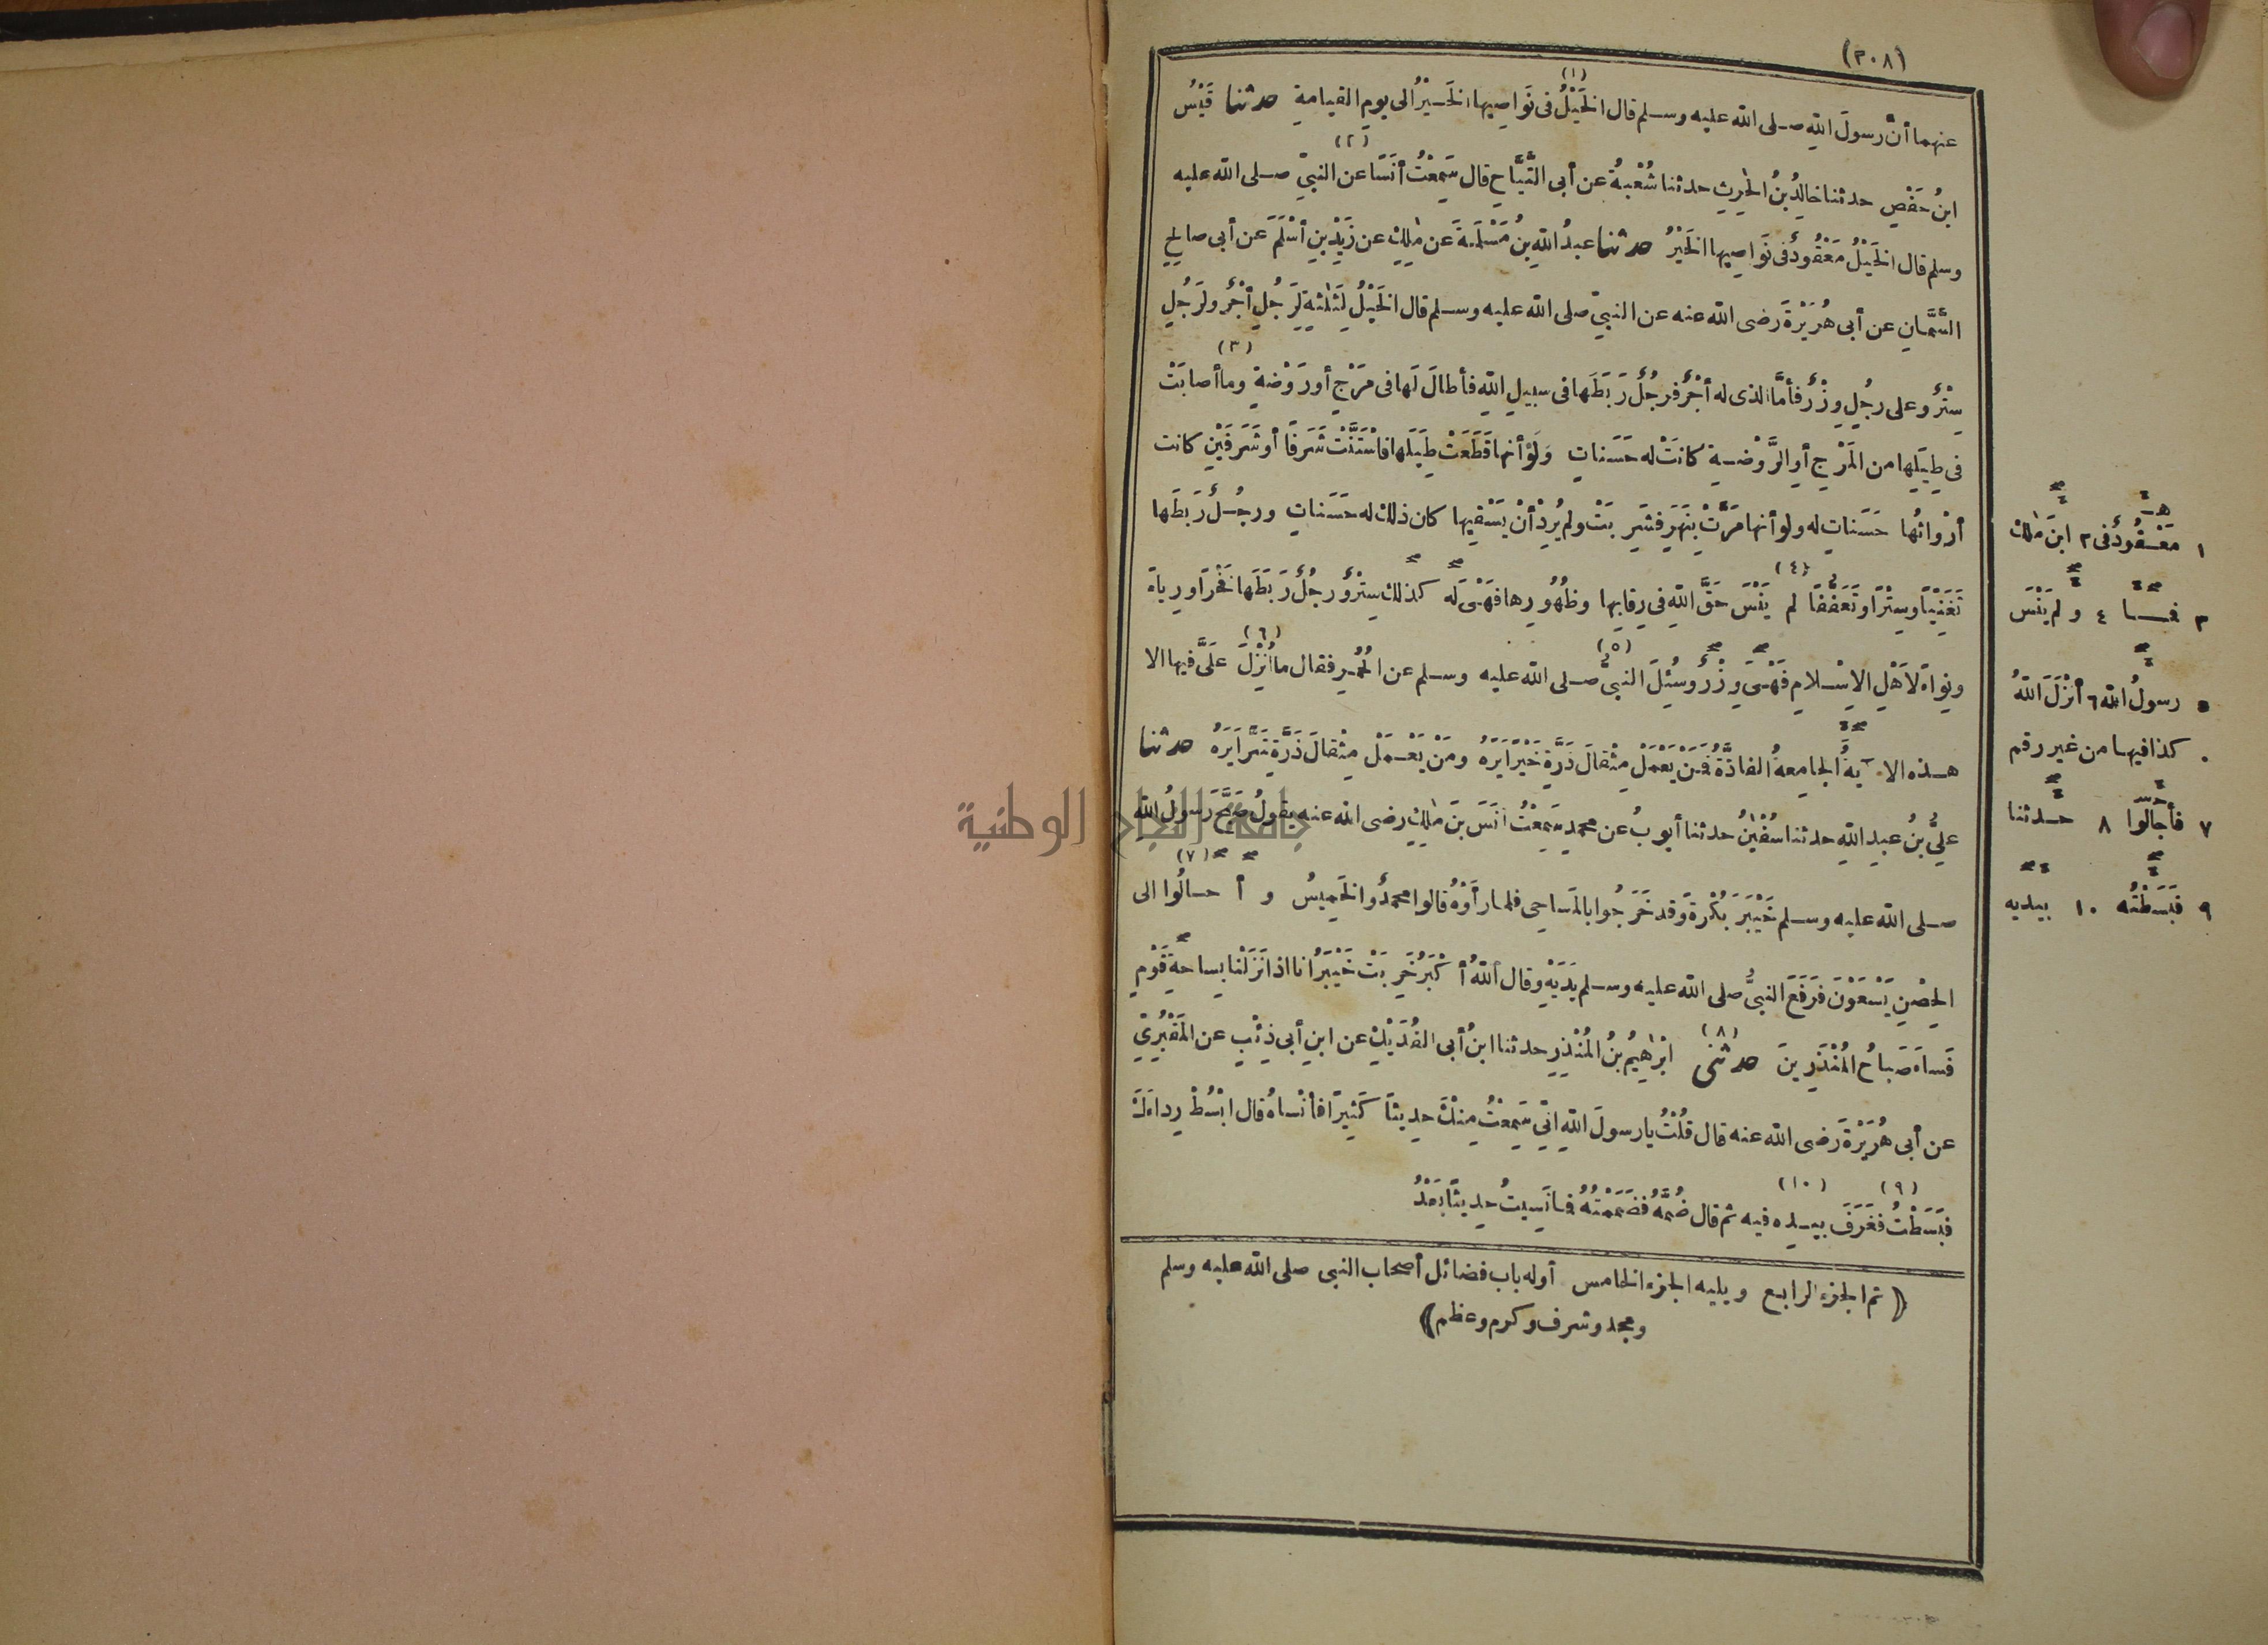 (٢٠٨)
عنهما أنَّ رسولَ اللهِ صلى الله عليه وسلم قال الخَيْلُ (١) فى نَوَاصِيها الخَيْرُ الى يوم القيامةِ حدثنا قَيْسُ
ابنُ حَفْصٍ حدثنا خالِدُ بنُ الحٰرِثِ حدثنا شُعْبةُ عن أبى التَّيَّاحِ قال سَمِعْتُ أنَسًا (٢) عن النبىّ صلى الله عليه
وسلم قال الخَيْلُ مَعْقُودٌ فى نَوَاصِيها الخَيْرُ حدثنا عبدُ اللهِ بنُ مَسْلَمَةَ عن مٰلِكٍ عن زَيْدِ بنِ أسْلَمَ عن أبى صالحٍ
السَّمَّانِ عن أبى هُرَيْرَةَ رضى الله عنه عن النبىّ صلى الله عليه وسلم قال الخَيْلُ لِثَلٰثةٍ لِرَجُلٍ أجْرٌ ولِرَجُلٍ
سِتْرٌ وعلى رجُلٍ وِزْرٌ فأمَّا الذى له أجْرٌ فرجُلٌ رَبَطَها فى سبيلِ اللهِ فأطالَ لَها فى مَرْجٍ أو رَوْضةٍ (٣) وما أصابَتْ
فى طِيَلِها من المَرْجِ أوِ الرَّوْضةِ كانَتْ له حَسَناتٍ وَلَوْ أنها قَطَعَتْ طِيَلَها فاسْتَنَّتْ شَرَفًا أو شَرَفَيْنِ كانت
أرْواثُها حَسَناتٍ له ولو أنها مَرَّتْ بِنَهَرٍ فشَرِبَتْ ولم يُرِدْ أنْ يَسْقِيها كان ذلك له حَسَناتٍ ورجُلٌ رَبَطَها
تَغَنِّيًا وسِتْرًا وتَعَفُّفًا لم (٤) يَنْسَ حَقَّ اللهِ فى رِقابِها وظُهُورِها فَهْىَ لَه كذلك سِتْرٌ ورجُلٌ رَبَطَها فَخْرًا ورِياءً
ونِوَاءً لِأهْلِ الاِسْلامِ فَهْىَ وِزْرٌ وسُئِلَ النبىُّ (٥) صلى الله عليه وسلم عن الحُمُرِ فقال ما أُنْزِلَ (٦) عَلَىَّ فيها الا
هذه الآيةُ الجامِعةُ الفاذَّةُ فَمَنْ يَعْمَلْ مِثْقالَ ذَرَّةٍ خَيْرًا يَرَهُ ومَنْ يَعْمَلْ مِثْقالَ ذَرَّةٍ شَرًّا يَرَهُ حدثنا
علىُّ بنُ عبدِ اللهِ حدثنا سُفْيٰنُ حدثنا أيوبُ عن محمدٍ سَمِعْتُ أنَسَ بنَ مٰلِكٍ رضى الله عنه يقولُ صَبَّحَ رسولُ اللهِ
صلى الله عليه وسلم خَيْبَرَ بُكْرَةً وقد خَرَجُوا بالمَساحِى فلما رأوْهُ قالوا محمدٌ والخَمِيسُ و أحالُوا (٧) الى
الحِصْنِ يَسْعَوْنَ فرَفَعَ النبىُّ صلى الله عليه وسلم يَدَيْهِ وقال اللهُ أكْبَرُ خَرِبَتْ خَيْبَرُ انا اذا نَزَلْنا بِساحةِ قَوْمٍ
فَساءَ صَباحُ المُنْذَرِينَ حدثنى (٨) ابْرٰهِيمُ بنُ المُنْذِرِ حدثنا ابنُ أبى الفُدَيْكِ عن ابنِ أبى ذِئْبٍ عن المَقْبُرِىِّ
عن أبى هُرَيْرَةَ رضى الله عنه قال قُلْتُ يا رسولَ اللهِ انِّى سَمِعْتُ مِنْكَ حدِيثًا كَثِيرًا فأنْساهُ قال ابْسُطْ رِداءَكَ
فبَسَطْتُ (٩) فغَرَفَ بيده (١٠) فيه ثم قال ضُمَّهُ فضَمَمْتُهُ فما نَسِيتُ حدِيثًا بَعْدُ
﴿ تم الجزء الرابع ويليه الجزء الخامس أوله باب فضائل أصحاب النبى صلى الله عليه وسلم
ومجد وشرف وكرم وعظم ﴾
١ مَعْقُودٌ فى ٢ ابنَ مٰلك
٣ فما ٤ ولم يَنْسَ
٥ رسولُ الله ٦ أنْزَلَ اللهُ
. كذا فيها من غير رقم
٧ فأجالُوا ٨ حدثنا
٩ فبَسَطْتُه ١٠ بيديه
جامعة النجاح الوطنية